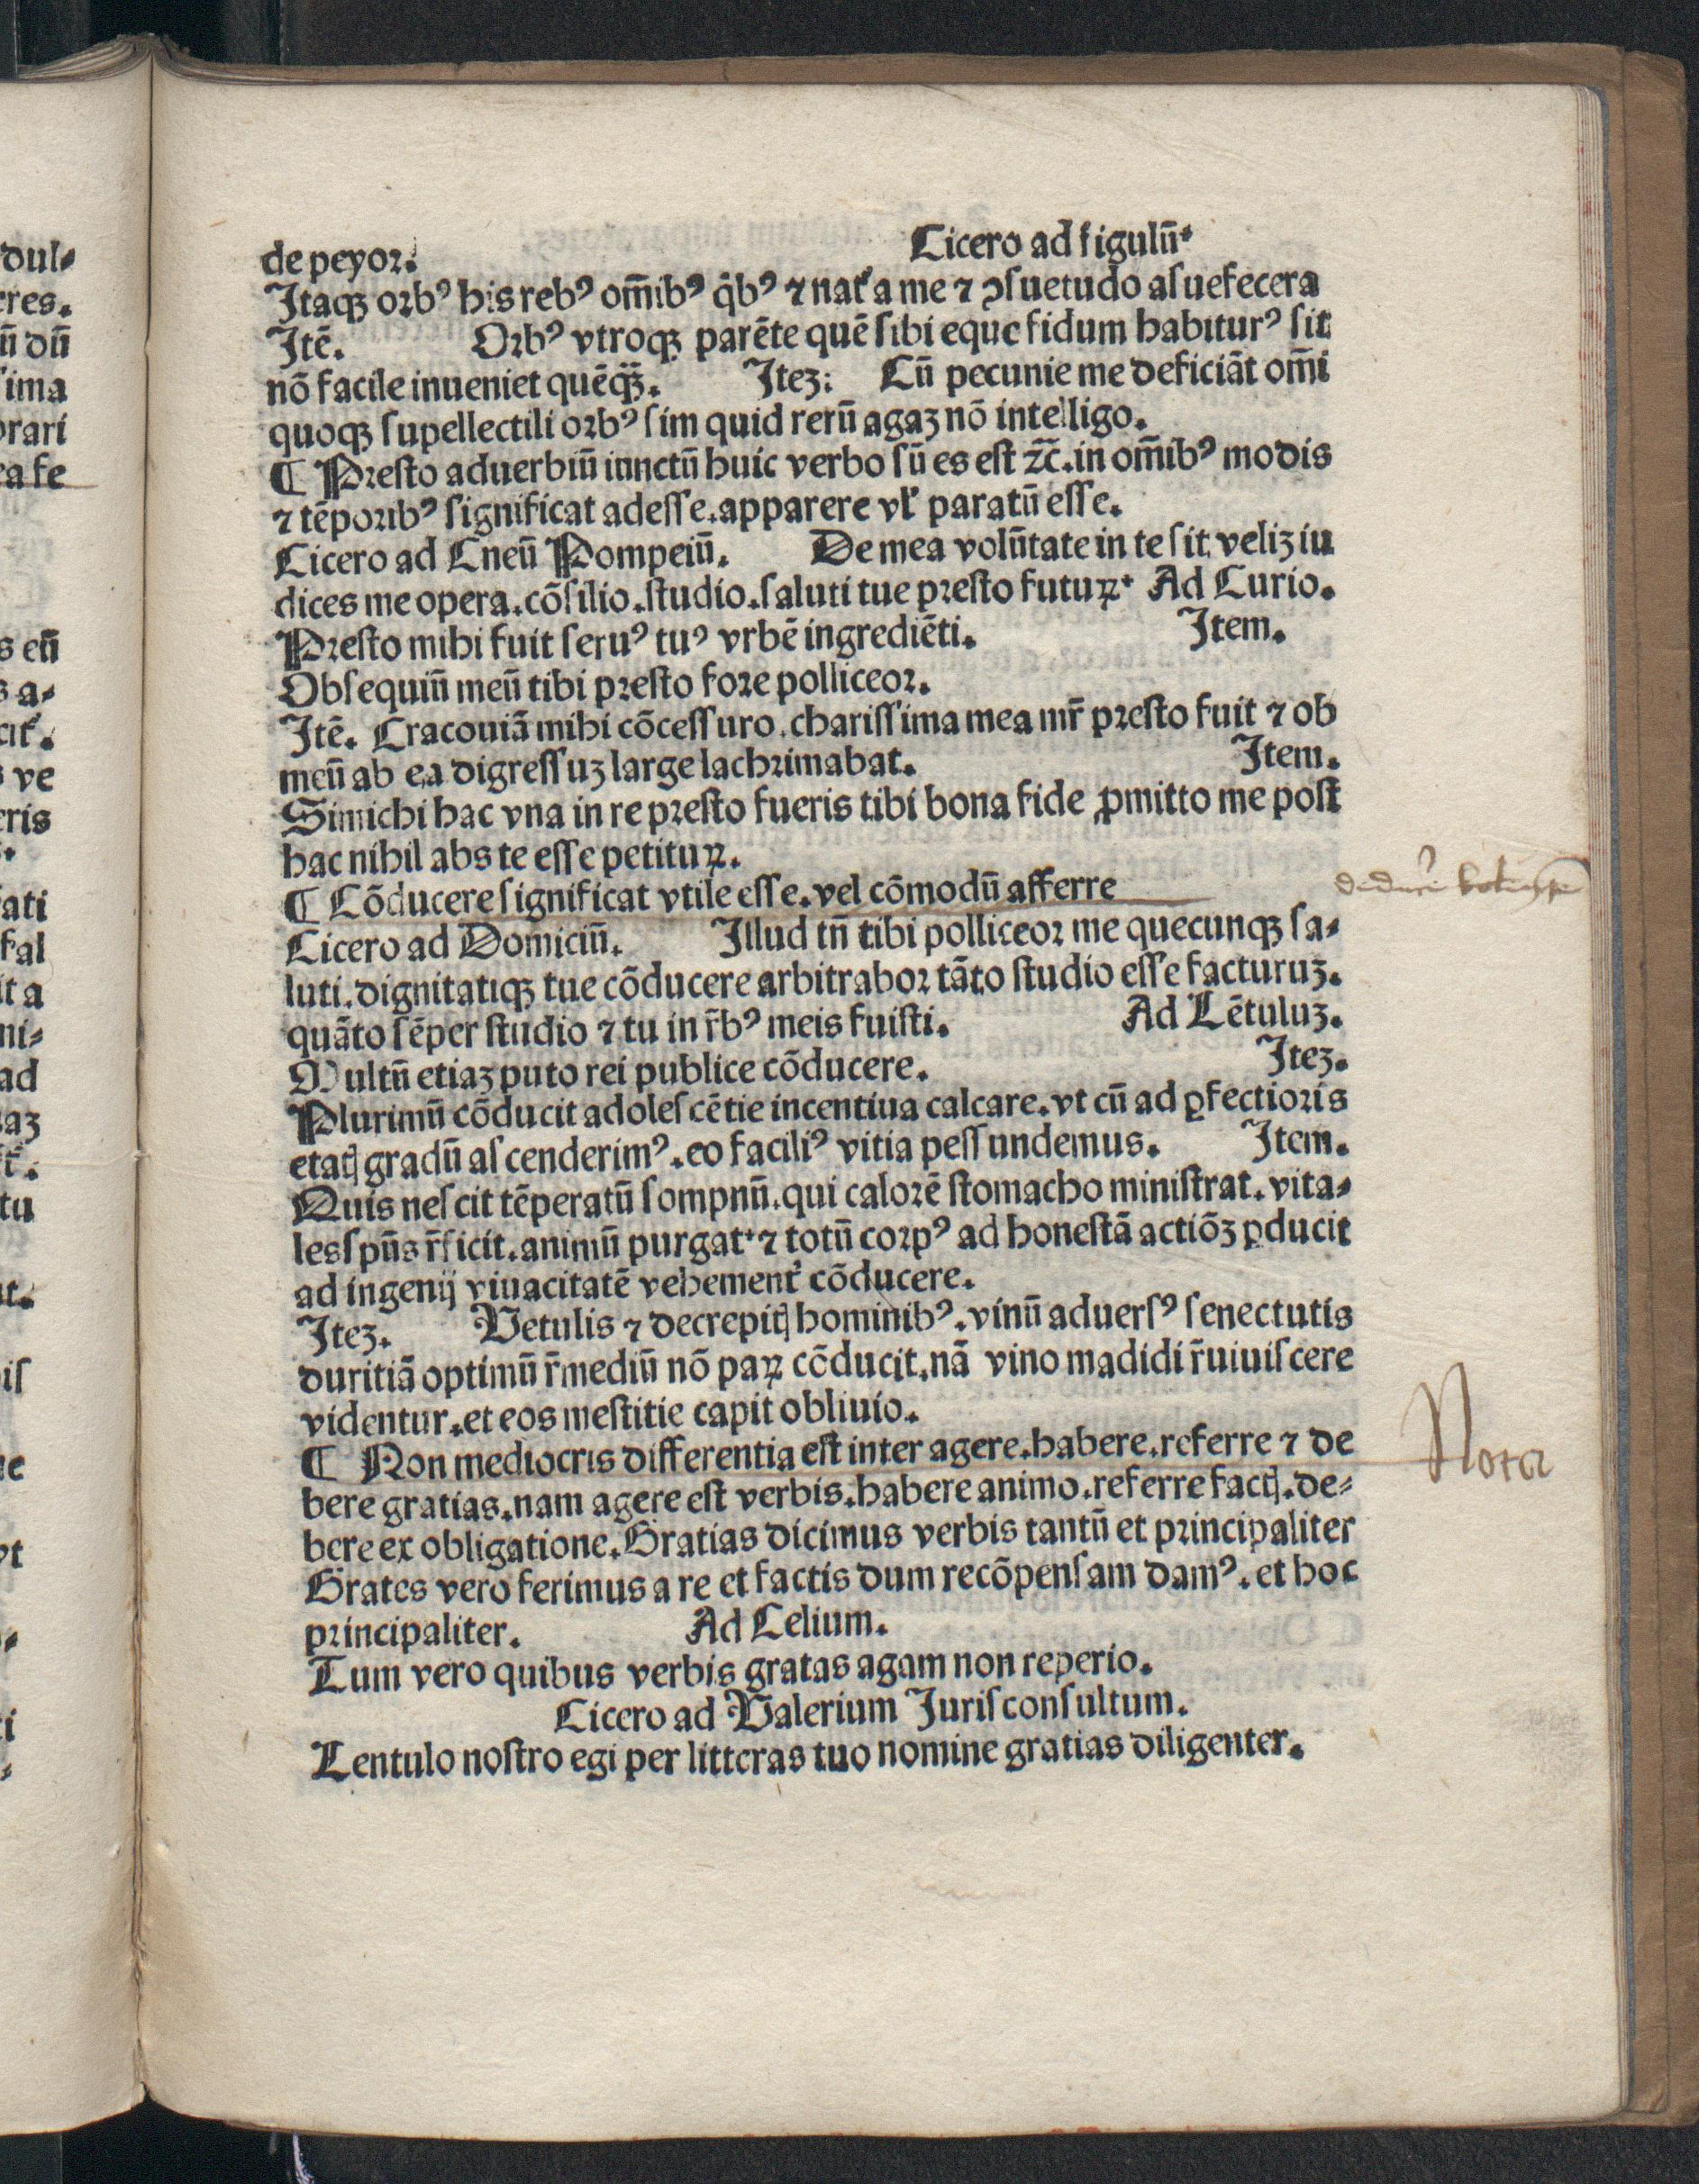 de peyoꝛ. Cicero ad figulū.
Itaqꝫ oꝛbꝰ his rebꝰ om̄ibꝰ q̇bꝰ ⁊ nat᷑a me ⁊ ꝯſuetudo aſuefecera
Itē. Oꝛbꝰ vtroqꝫ parēte quē ſibi eque fidum habiturꝰ ſit
nō facile inueniet quēqꝫ̄. Iteꝫ: Cū pecunie me deficiāt om̄i
quoqꝫ ſupellectili oꝛbꝰ ſim quid rerū agaꝫ nō intelligo.
¶ Pꝛeſto aduerbiū iunctū huic verbo ſū es eſt ⁊c̄. in om̄ibꝰ modis
⁊ tēpoꝛibꝰ ſignificat adeſſe. apparere vl᷑ paratū eſſe.
Cicero ad Cneū Pompeiū. De mea volūtate in te ſit veliꝫ iu
dices me opera. cōſilio. ſtudio. ſaluti tue pꝛeſto futuꝝ. Ad Curio.
Pꝛeſto mihi fuit ſeruꝰ tuꝰ vrbē ingrediēti. Item.
Obſequiū meū tibi pꝛeſto foꝛe polliceoꝛ.
Itē. Cracouiā mihi cōceſſuro. chariſſima mea mr̄ pꝛeſto fuit ⁊ ob
meū ab ea digreſſuꝫ large lachꝛimabat. Item.
Si michi hac vna in re pꝛeſto fueris tibi bona fide ꝓmitto me poſt
hac nihil abs te eſſe petituꝝ.
¶ Cōducere ſignificat vtile eſſe. vel cōmodū afferre
Cicero ad Domiciū. Illud tn̄ tibi polliceoꝛ me quecunqꝫ ſa⸗
luti. dignitatiqꝫ tue cōducere arbitraboꝛ tāto ſtudio eſſe facturuꝫ.
quāto ſēper ſtudio ⁊ tu in r̄bꝰ meis fuiſti. Ad Lētuluꝫ.
Multū etiaꝫ puto rei publice cōducere. Iteꝫ.
Plurimū cōducit adoleſcētie incentiua calcare. vt cū ad ꝑfectioꝛis
etatꝭ gradū aſcenderimꝰ. eo faciliꝰ vitia peſſundemus. Item.
Quis neſcit tēperatū ſompnū. qui caloꝛē ſtomacho miniſtrat. vita⸗
les ſpūs r̄ficit. animū purgat. ⁊ totū coꝛpꝰ ad honeſtā actiōꝫ ꝑducit
ad ingenij viuacitatē vehement᷑ cōducere.
Iteꝫ. Vetulis ⁊ decrepitꝭ hominibꝰ. vinū aduerſꝰ ſenectutis
duritiā optimū r̄mediū nō paꝝ cōducit. nā vino madidi r̄uiuiſcere
videntur. et eos meſtitie capit obliuio.
¶ Non mediocris differentia eſt inter agere. habere. referre ⁊ de
bere gratias. nam agere eſt verbis. habere animo. referre factꝭ. de⸗
bere ex obligatione. Gratias dicimus verbis tantū et pꝛincipaliter
Grates vero ferimus a re et factis dum recōpenſam damꝰ. et hoc
pꝛincipaliter. Ad Celium.
Tum vero quibus verbis gratas agam non reperio.
Cicero ad Valerium Juriſconſultum.
Lentulo noſtro egi per litteras tuo nomine gratias diligenter.
Nota